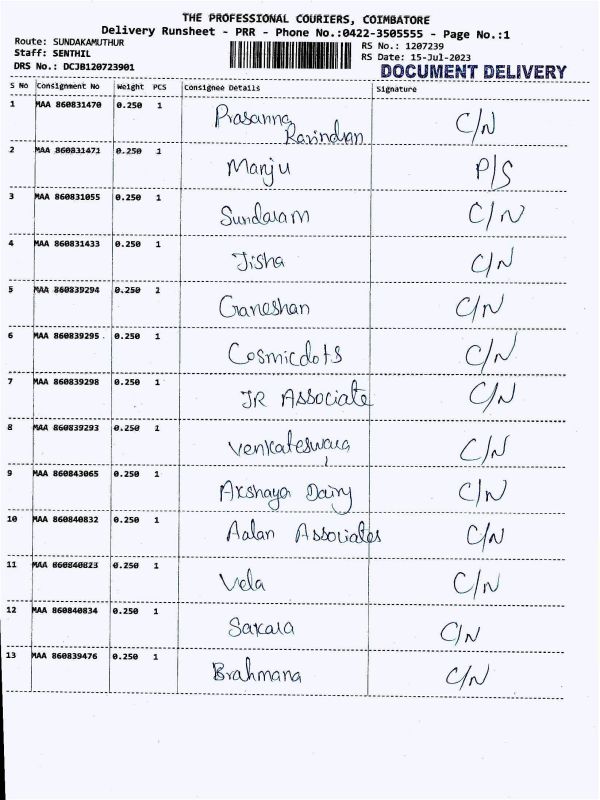 THE PROFESSIONAL COURIERS, COIMBATORE
Delivery Runsheet - PRR - Phone No.:0422-3505555 - Page No.:1
Route: SUNDAKAMUTHUR
Staff: SENTHIL
DRS No.: DCJB120723901
RS No.: 1207239
RS Date: 15-Jul-2023
DOCUMENT DELIVERY
S No Consignment No Weight PCS Consignee Details Signature
1 MAA 860831470 0.250 1 Prasanna Ravindran C/N
2 MAA 860831471 0.250 1 Manju P/S
3 MAA 860831055 0.250 1 Sundaram C/N
4 MAA 860831433 0.250 1 Jisha C/N
5 MAA 860839294 0.250 1 Ganeshan C/N
6 MAA 860839295 0.250 1 Cosmicdots C/N
7 MAA 860839298 0.250 1 JR Associate C/N
8 MAA 860839293 0.250 1 Venkateswara C/N
9 MAA 860843065 0.250 1 Akshaya Dairy C/N
10 MAA 860840832 0.250 1 Aalan Associates C/N
11 MAA 860840823 0.250 1 Vela C/N
12 MAA 860840834 0.250 1 Sakara C/N
13 MAA 860839476 0.250 1 Brahmana C/N